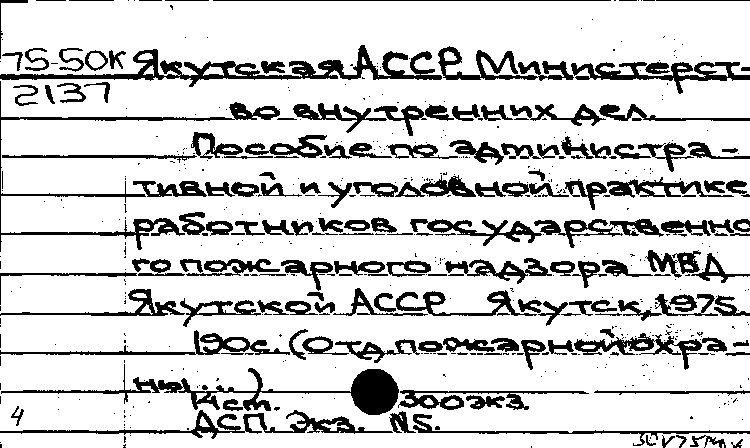 75-50К Якутская АССР. Министерст-
2137
во внутренних дел.
Пособие по администра-
тивной и уголовной практике
работников государственно
го пожарного надзора МВД
Якутской АССР Якутск, 1975.
190с. (Отд. пожарной охра-
ны ...).
14 ст. 300 экз.
4 ДСП. Экз. №5.